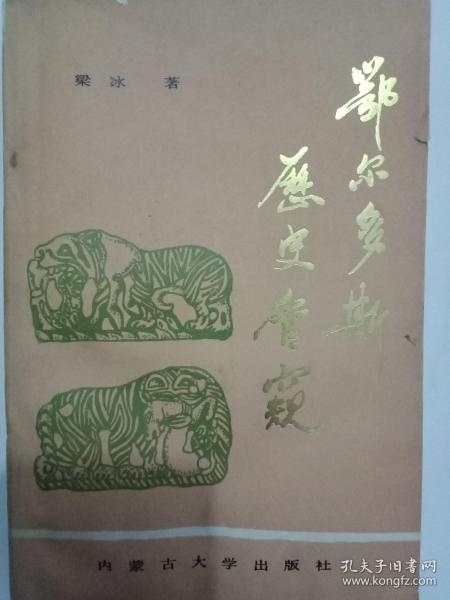 梁冰 著
鄂尔多斯
历史管窥
内蒙古大学出版社
孔夫子旧书网
www.kongfz.com